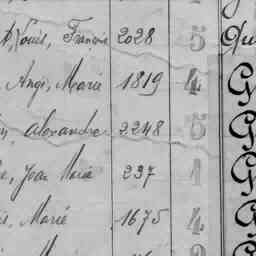 Louis, François 2028 5 Qu
Ange, Marie 1819 4 G
Alexandre 2248 5 G
Jean Marie 237 1 G
Marie 1675 4